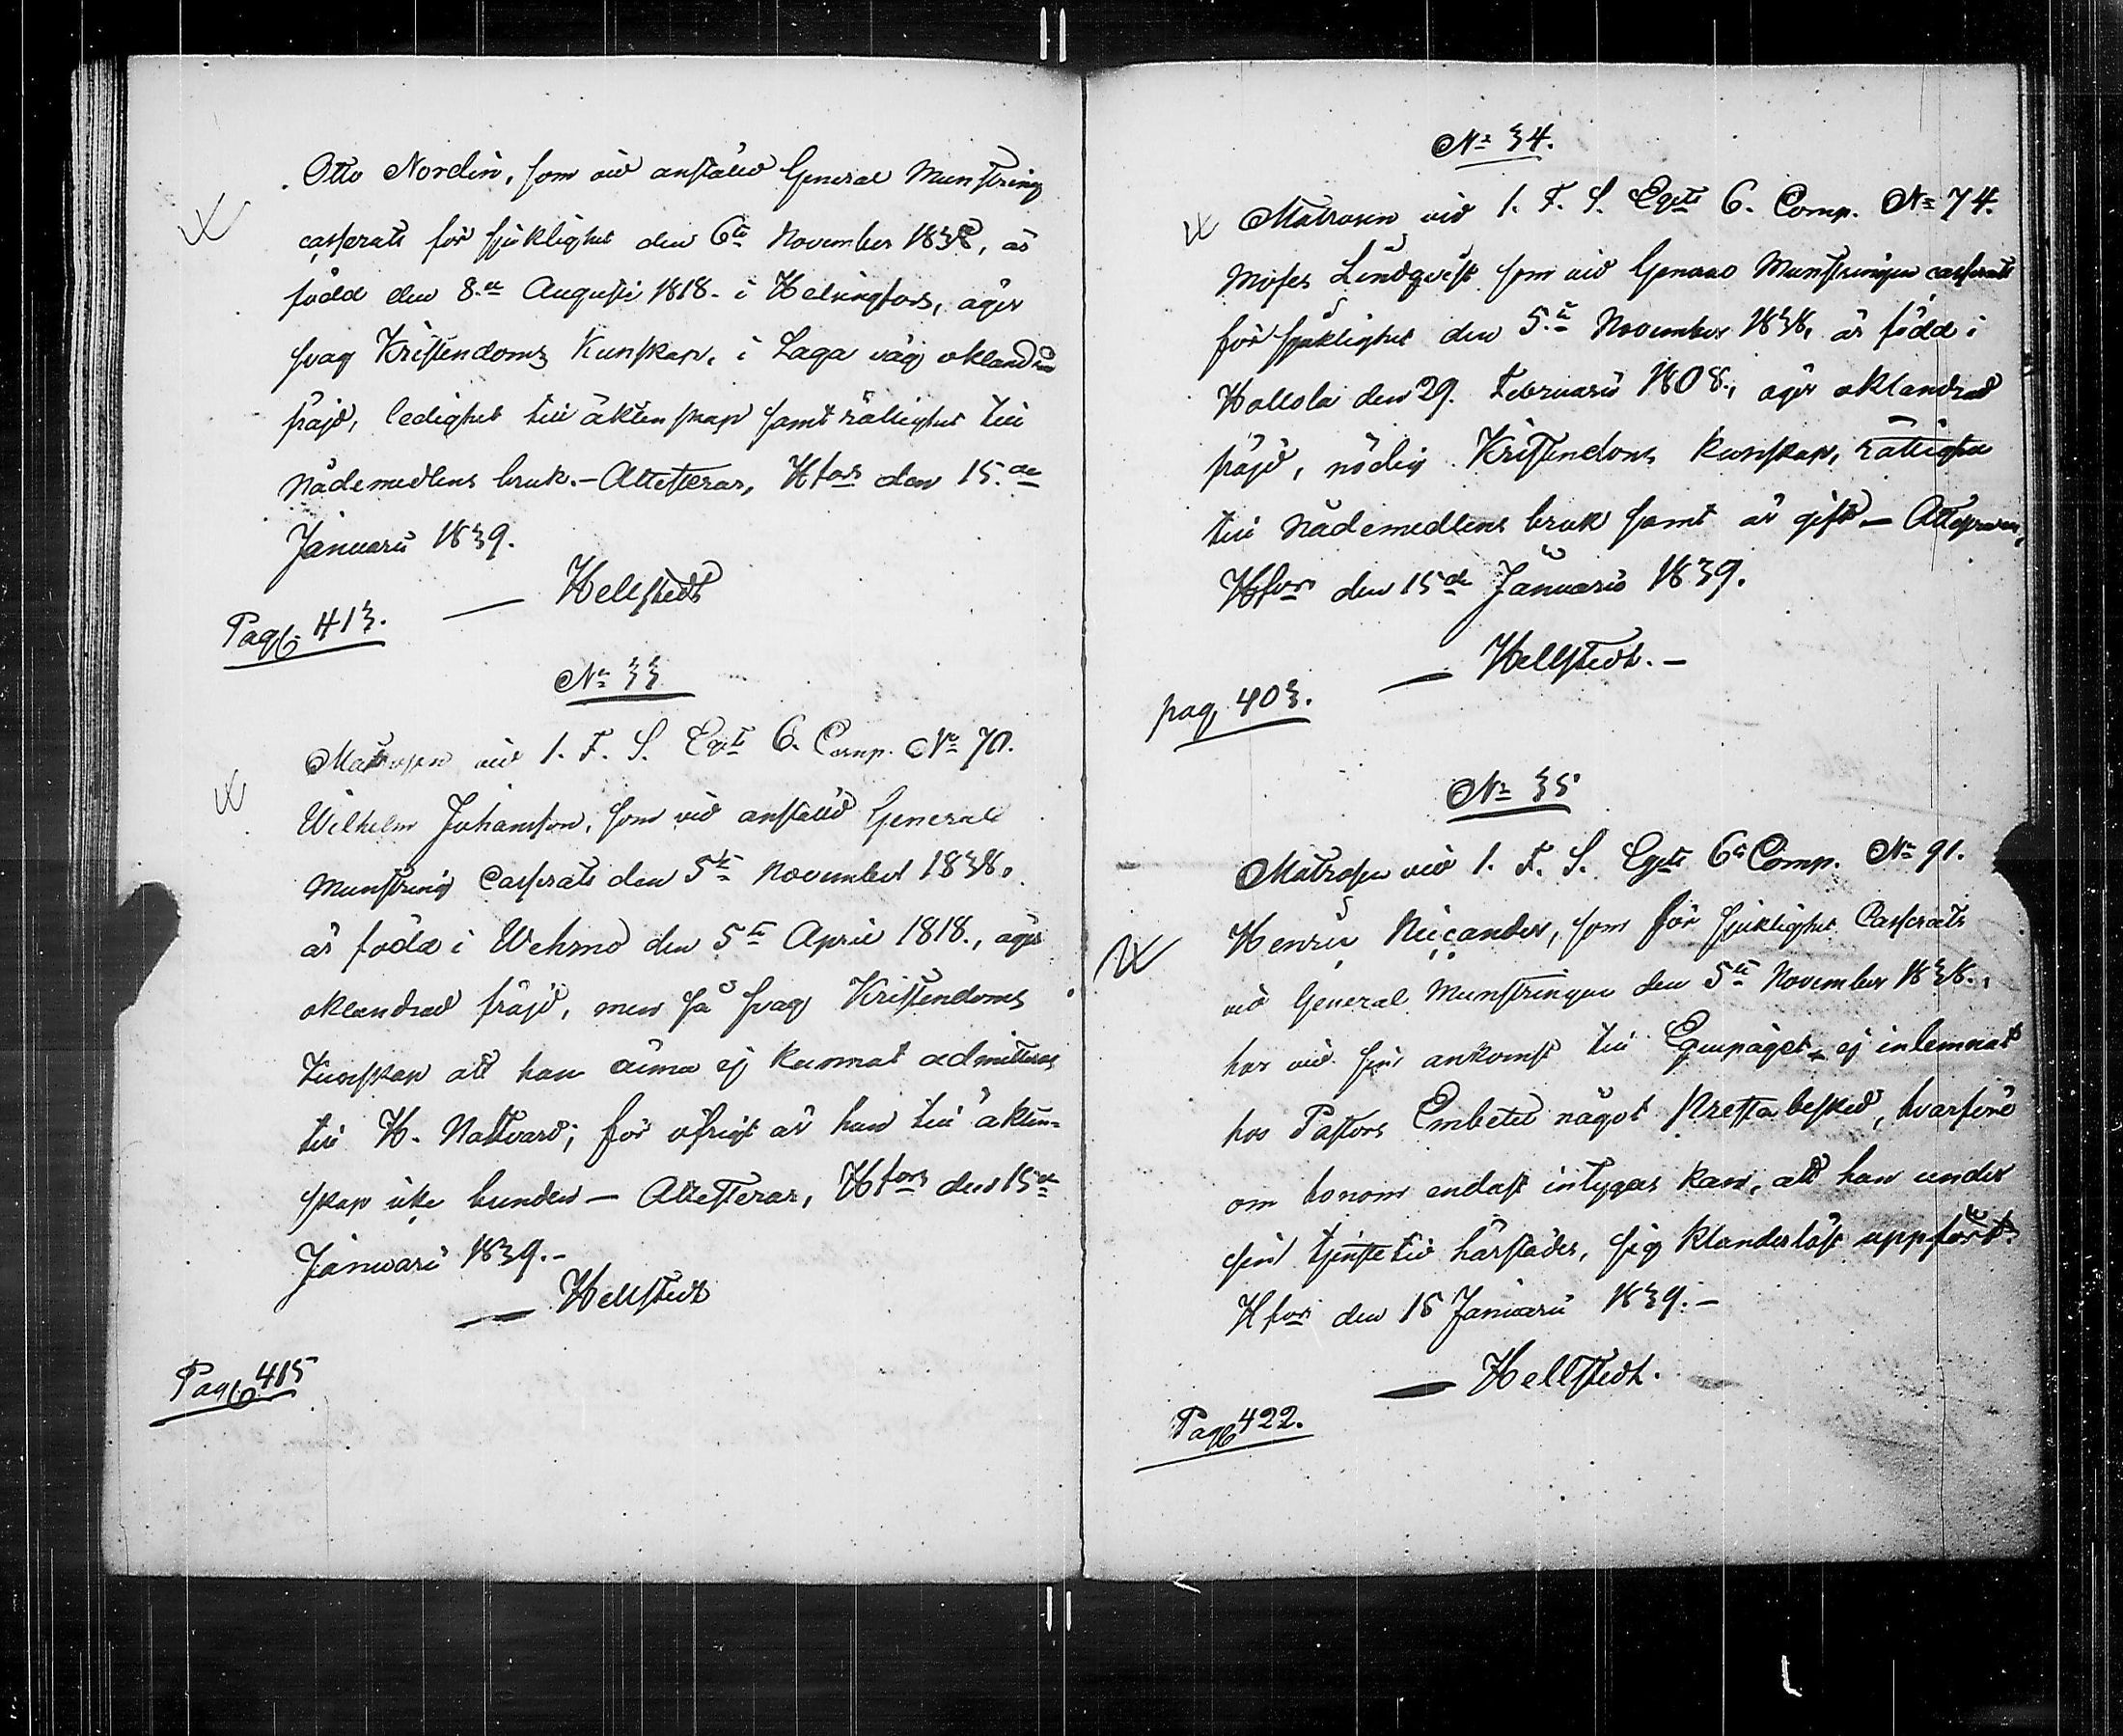 Otto Nordin, som vid anstäld General Munstring
casserats för sjuklighet den 6te November 1838, är
född den 8.de Augusti 1818. i Helsingfors, äger
svag Kristendoms Kunskap, i Laga väg oklandrad
fräjd, ledighet till äktenskap samt rättighet till
Nådemedlens bruk. – Attesteras, Hfors den 15.de
Januarii 1839.
— Hellstedt
Pag 413.
No 33
Matrosen vid 1. F. S. Eqts 6. Comp. No 70.
Wilhelm Johansson, som vid anstäld General
Munstring Casserats den 5te November 1838.
är född i Wehmo den 5te April 1818., äger
oklandrad fräjd, men så svag Kristendoms
Kunskap att han ännu ej kunnat admitteras
till H. Nattvard; för öfrigt är han till äkten-
skap icke bunden – Attesteras, Hfors den 15de
Januari 1839. –
— Hellstedt
Pag 415
No 34.
Matrosen vid 1. F. S. Eqts 6. Comp. No 74.
Moses Lindqvist som vid General Munstringen casserats
för sjuklighet den 5.te November 1838, är född i
Hollola den 29. Februarii 1808., äger oklandrad
fräjd, nödig Kristendoms kunskap, rättighet
till Nådemedlens bruk samt är gift – Attesteras,
Hfors den 15de Januarii 1839.
— Hellstedt. –
pag, 403.
No 35
Matrosen vid 1. F. S. Eqts 6te Comp. No 91.
Henric Nicander, som för sjuklighet Casserats
vid General Munstringen den 5te November 1838.,
har vid sin ankomst till Equipaget ej inlemnat
hos Pastors Embetet något Prestabesked, hvarföre
om honom endast intygas kan, att han under
sin tjenstetid härstädes, sig klanderlöst uppfört.
Hfors den 15 Januarii 1839. –
— Hellstedt.
Pag 422.